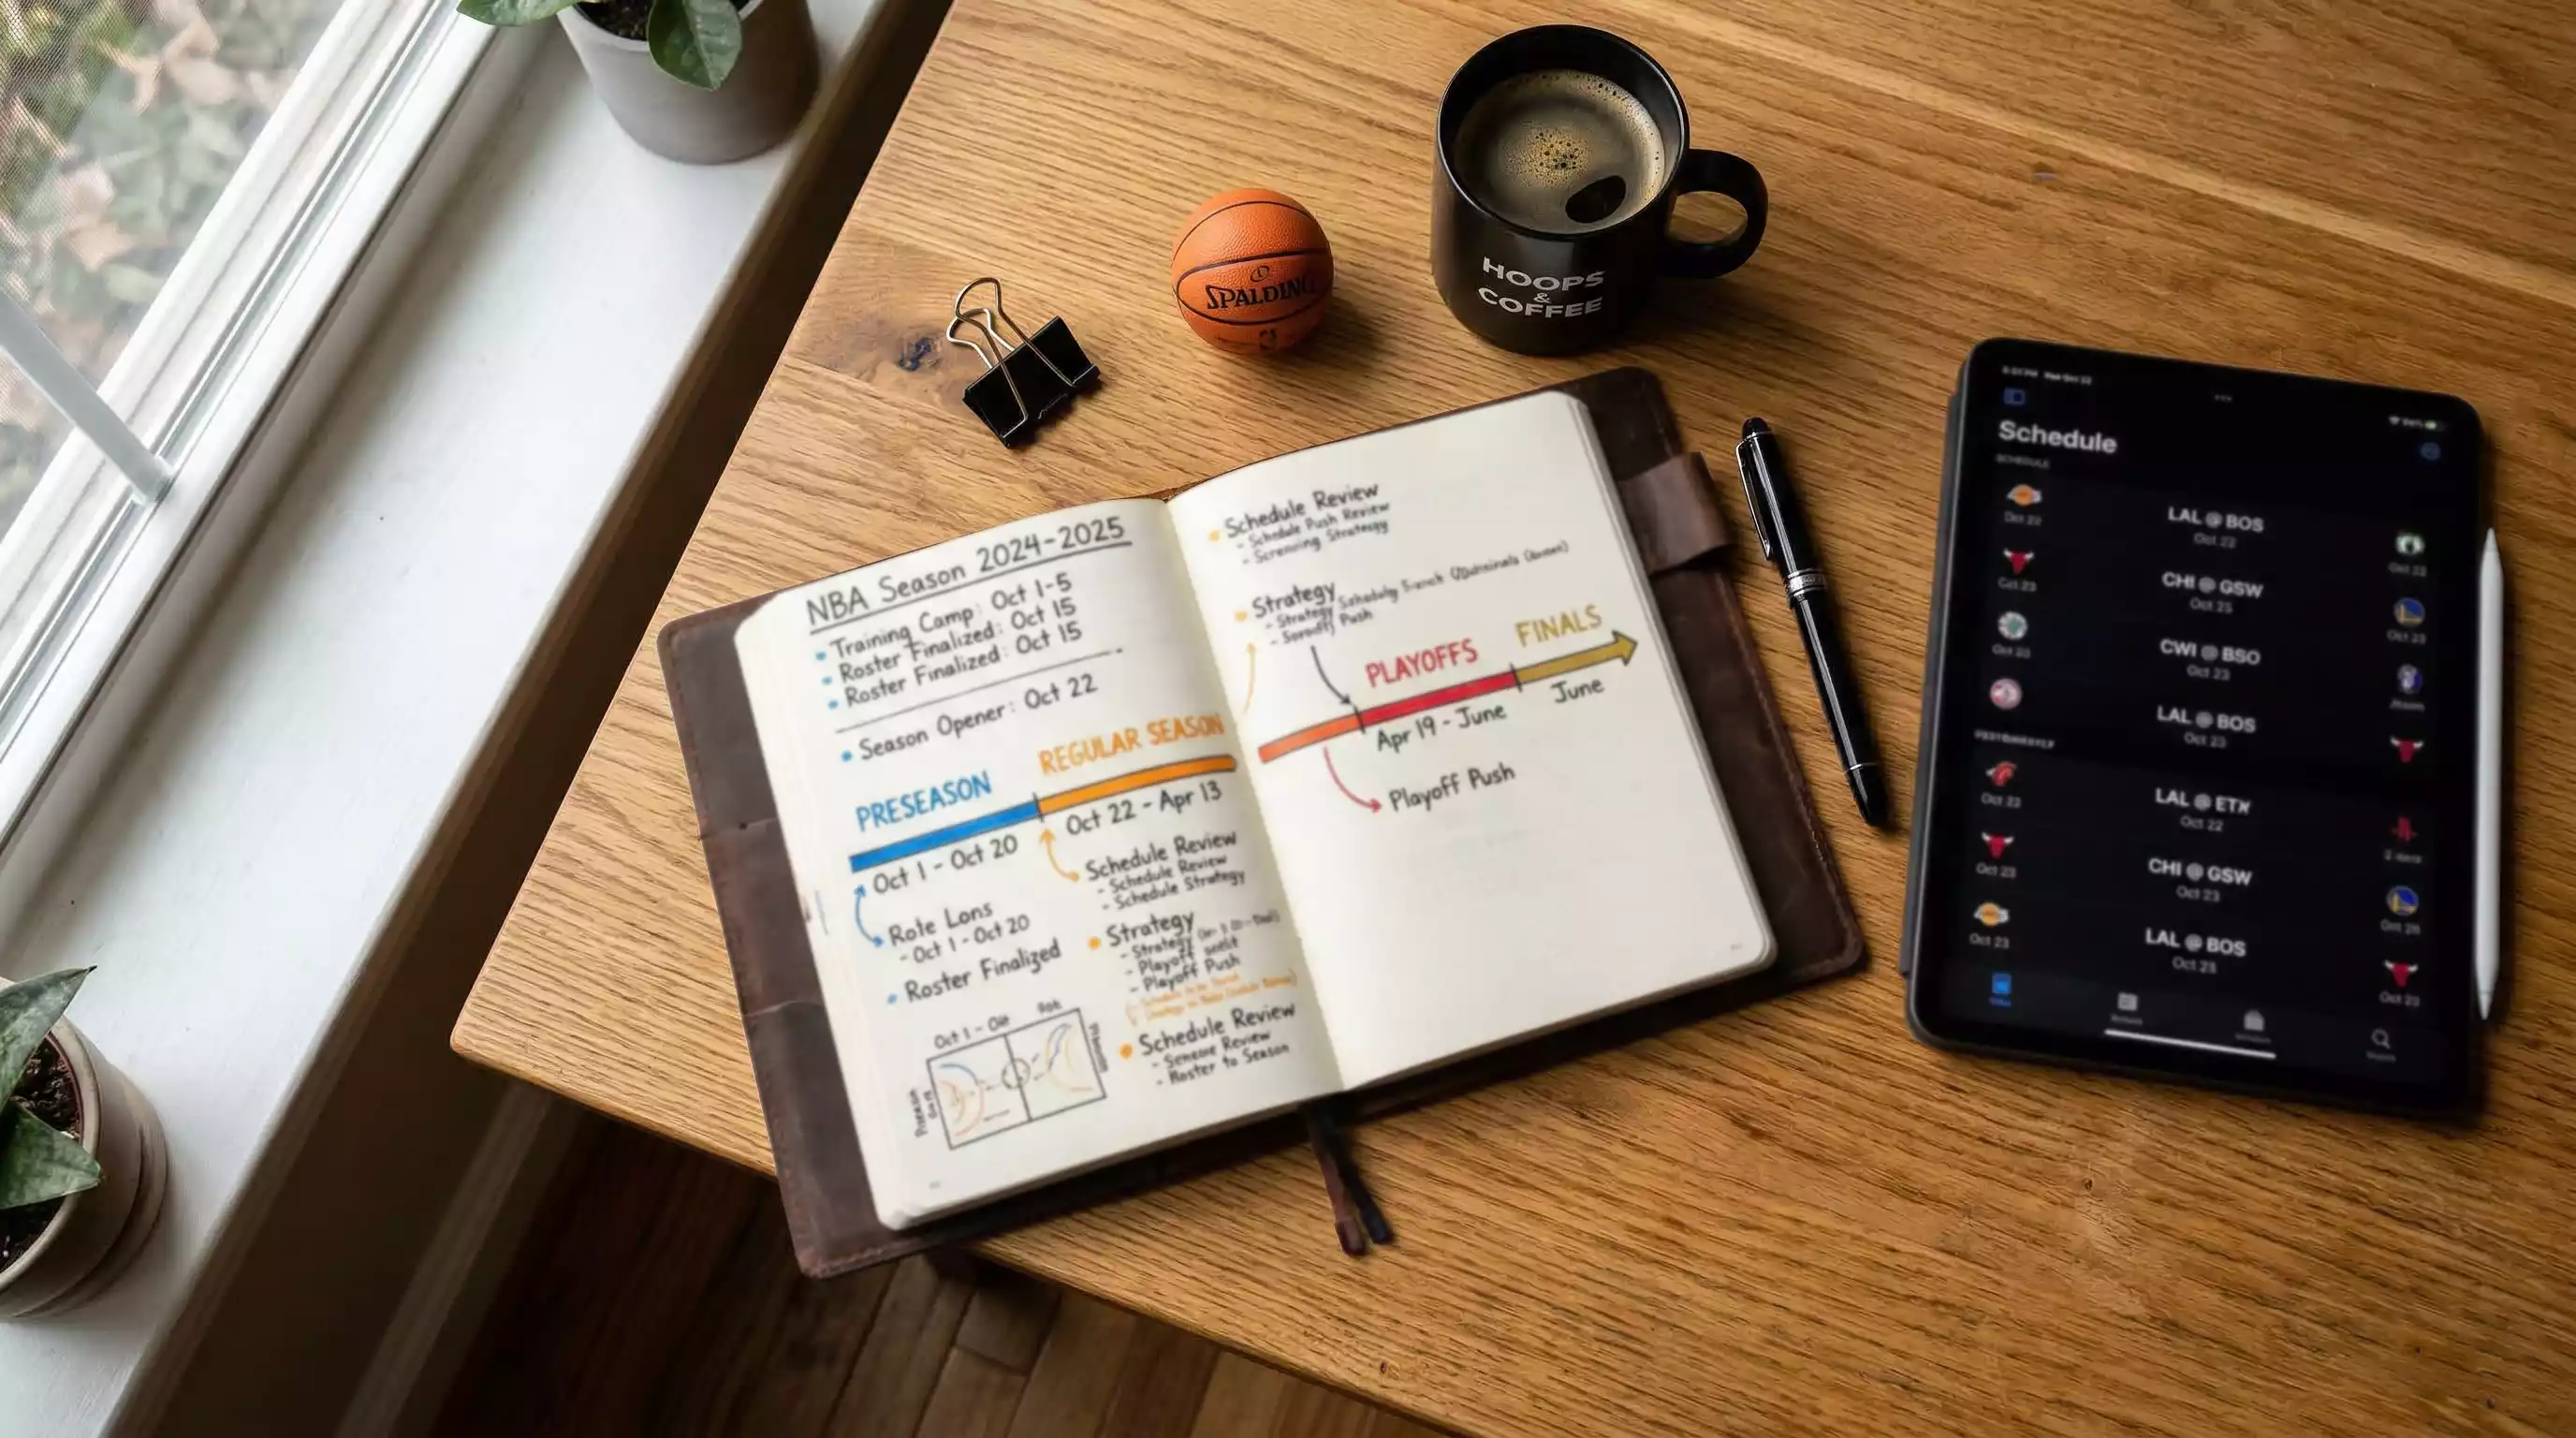 HOOPS
&
COFFEE
SPALDING
NBA Season 2024-2025
Training Camp: Oct 1-5
Roster Finalized: Oct 15
Roster Finalized: Oct 15
Season Opener: Oct 22
PRESEASON
REGULAR SEASON
Oct 1 - Oct 20
Oct 22 - Apr 13
Role Lons
- Oct 1 - Oct 20
Roster Finalized
Schedule Review
- Schedule Review
- Schedule Strategy
Strategy
- Strategy
- Playoff
- Playoff Push
Schedule Review
- Review
- Roster to Season
Oct 1 -
Schedule Review
- Schedule Push Review
- Strategy
Strategy
- Strategy
- Push
PLAYOFFS
FINALS
Apr 19 - June
June
Playoff Push
Schedule
SCHEDULE
LAL @ BOS
Oct 22
Oct 23
CHI @ GSW
Oct 23
Oct 25
Oct 23
CWI @ BSO
Oct 23
LAL @ BOS
Oct 23
LAL @ ETX
Oct 23
Oct 22
CHI @ GSW
Oct 23
Oct 23
LAL @ BOS
Oct 23
Oct 23
Oct 23